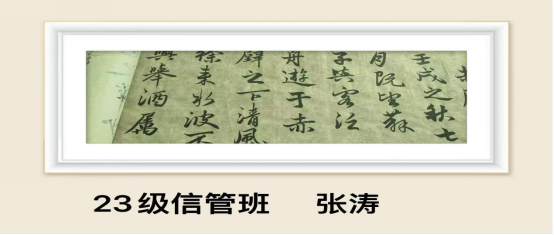 壬戌之秋七
月既望蘇
子與客泛
舟遊于赤
壁之下清風
徐来水波不
興舉酒屬
23级信管班 张涛